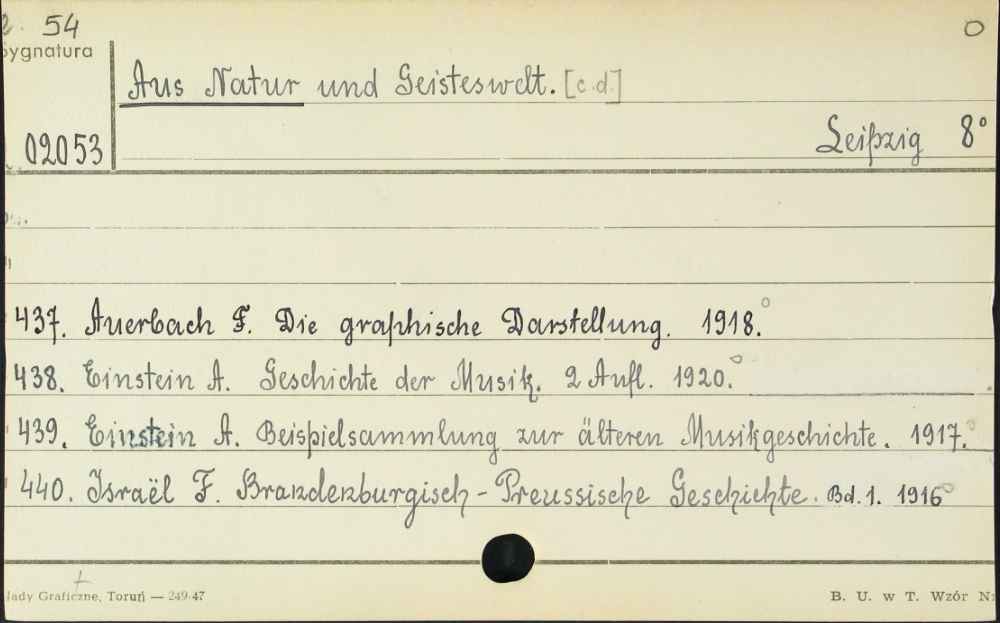 54 0
Sygnatura
Aus Natur und Geisteswelt. [c.d.]
02053 Leipzig 8°
437. Auerbach F. Die graphische Darstellung. 1918.°
438. Einstein A. Geschichte der Musik. 2 Aufl. 1920.°
439. Einstein A. Beispielsammlung zur älteren Musikgeschichte. 1917.°
440. Israël F. Brandenburgisch - Preussische Geschichte. Bd. 1. 1916°
łady Graficzne, Toruń — 249/47 B. U. w T. Wzór Nr